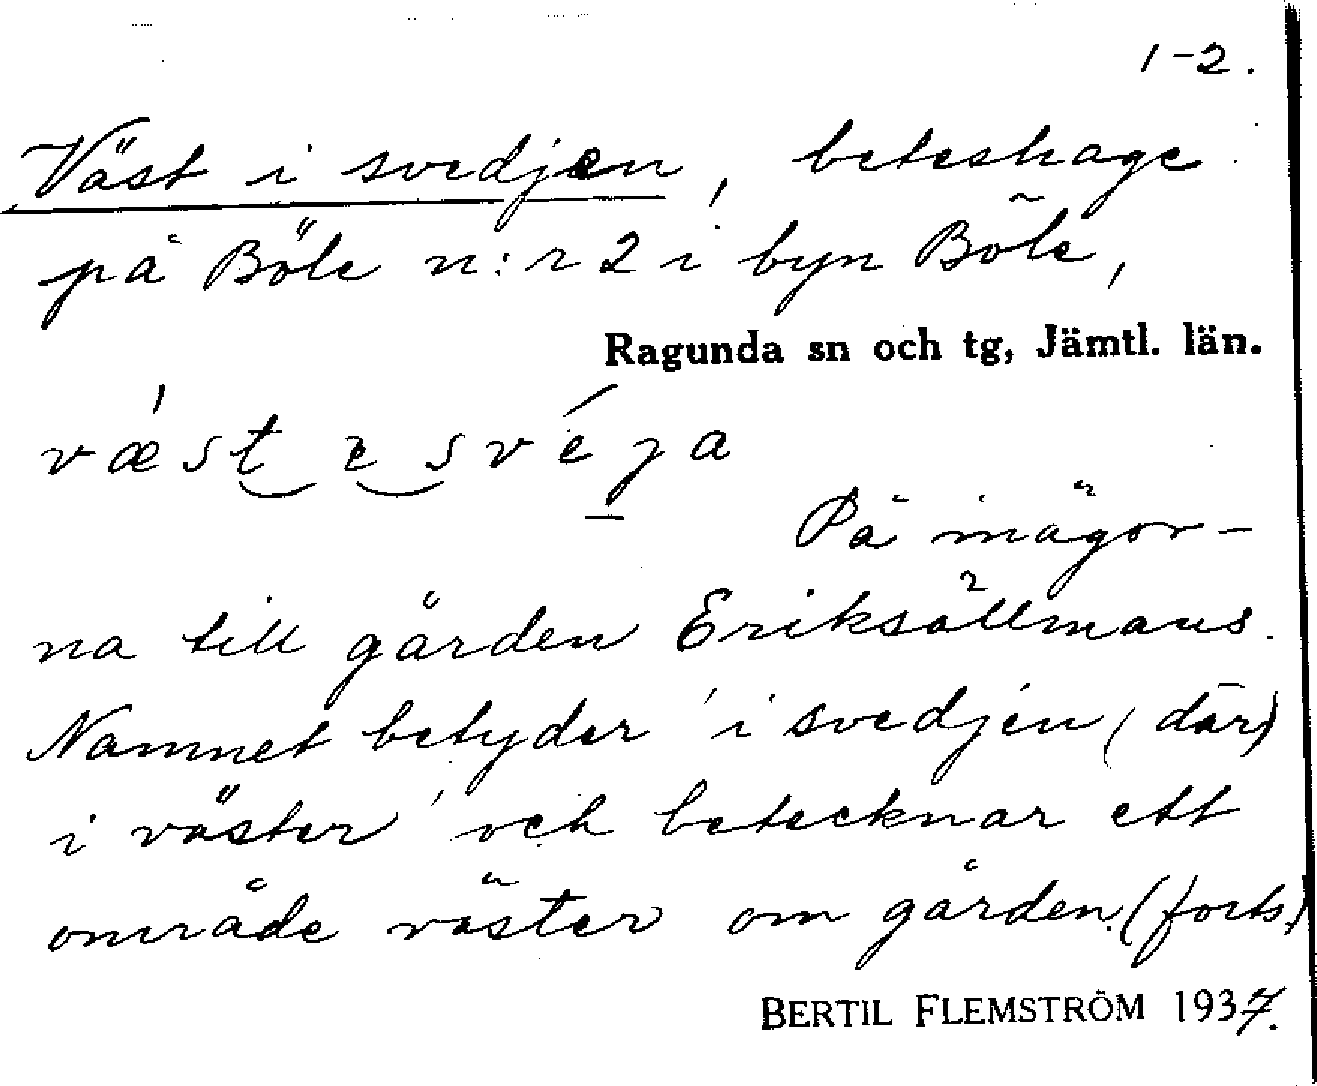 1-2.
Väst i svedjen, beteshage
på Böle n:r 2 i byn Böle,
Ragunda sn och tg, Jämtl. län.
væst e svéja
På inägor-
na till gården Eriksällmans.
Namnet betyder 'i svedjen (där)
i väster' och betecknar ett
område väster om gården. (forts.)
BERTIL FLEMSTRÖM 1937.